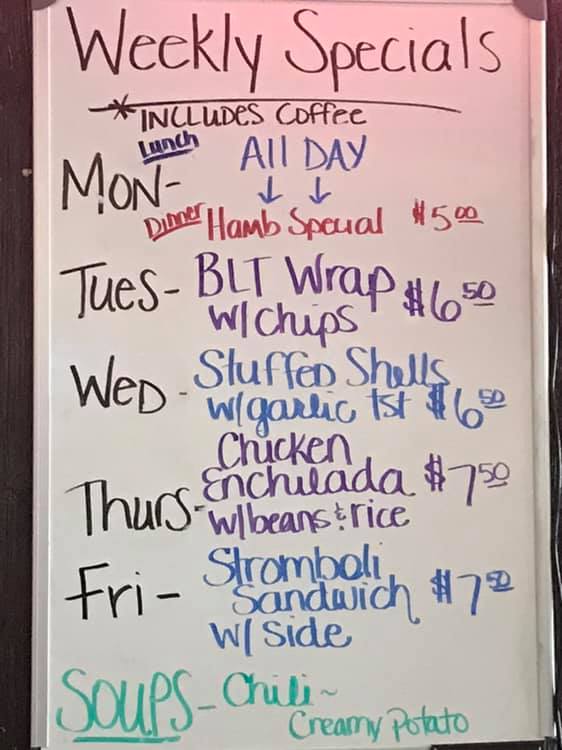 Weekly Specials
*INCLUDES Coffee
Lunch
All DAY
MON-
↓ ↓
Dinner Hamb Special $5.00
Tues- BLT Wrap $6.50
w/chips
Wed- Stuffed Shells
w/garlic tst $6.50
Chicken
Thurs- Enchilada $7.50
w/beans & rice
Fri- Stromboli
Sandwich $7.50
w/ side
Soups- Chili~
Creamy Potato